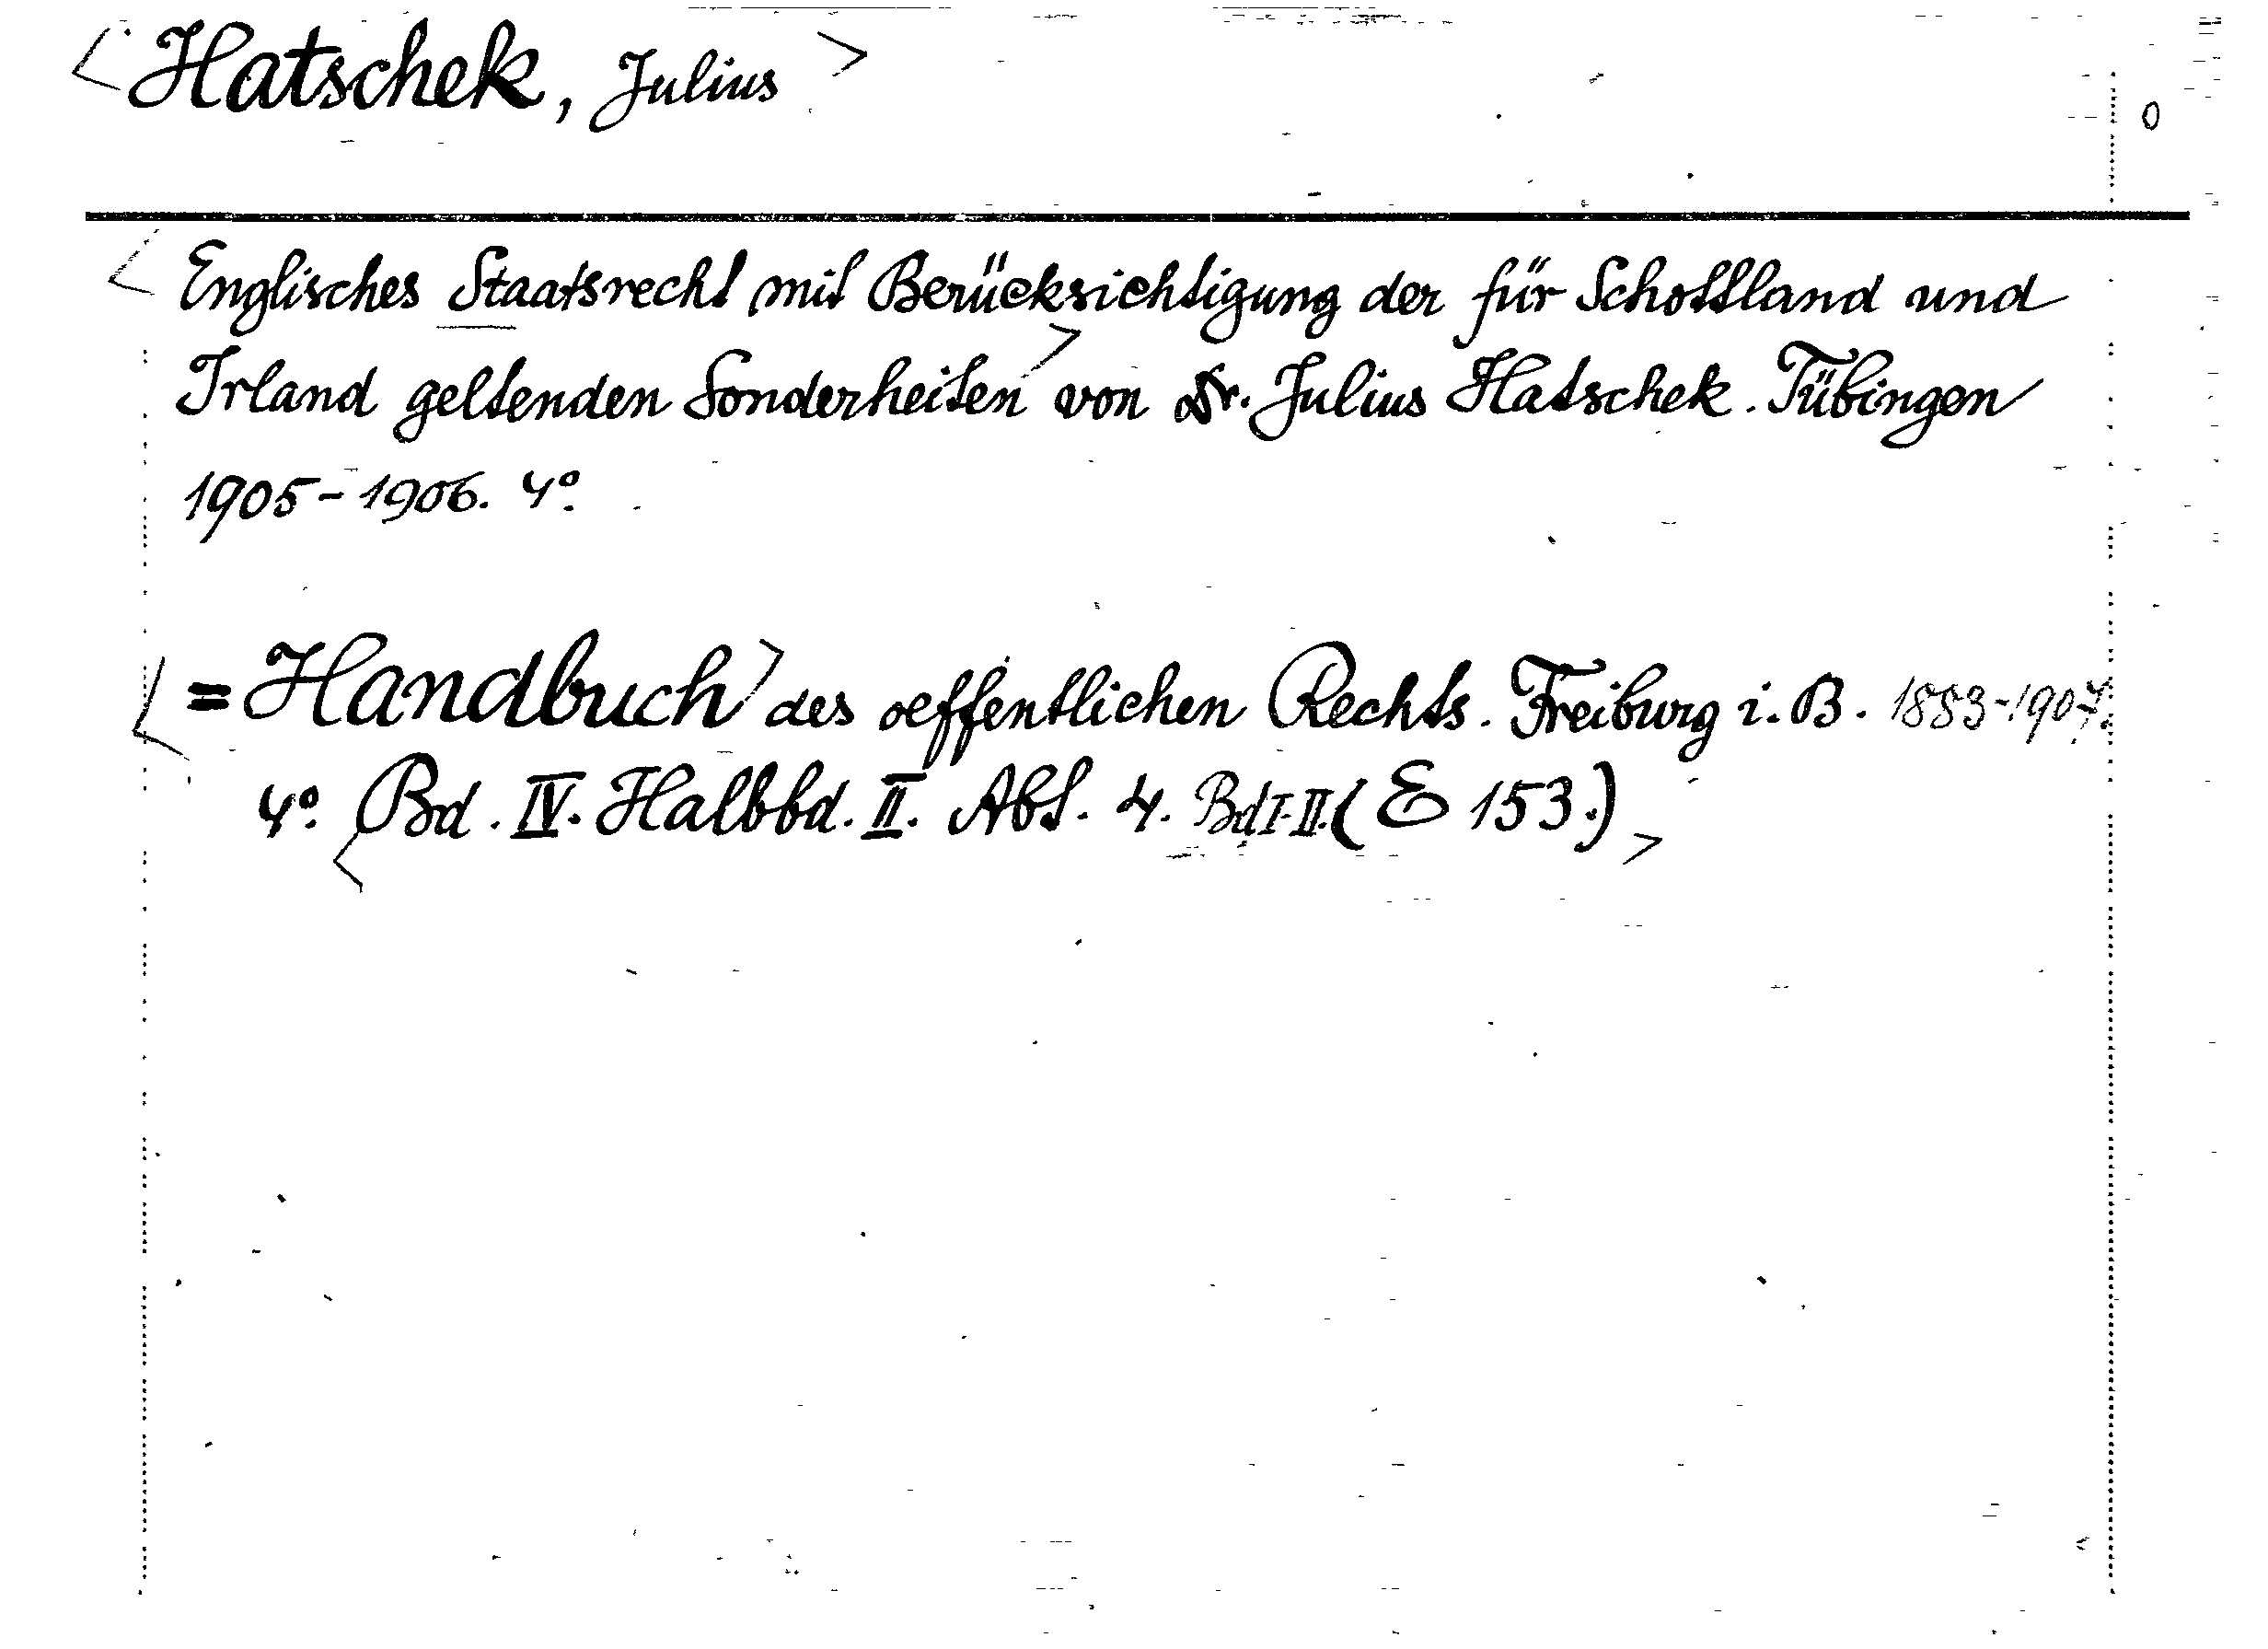 <Hatschek, Julius>
0
<Englisches Staatsrecht mit Berücksichtigung der für Schottland und
Irland geltenden Sonderheiten> von Dr. Julius Hatschek. Tübingen
1905-1906. 4°.
<=Handbuch> des oeffentlichen Rechts. Freiburg i. B. 1883-1907.
4°. <Bd. IV. Halbbd. II. Abt. 4. Bd I-II. (E 153.)>